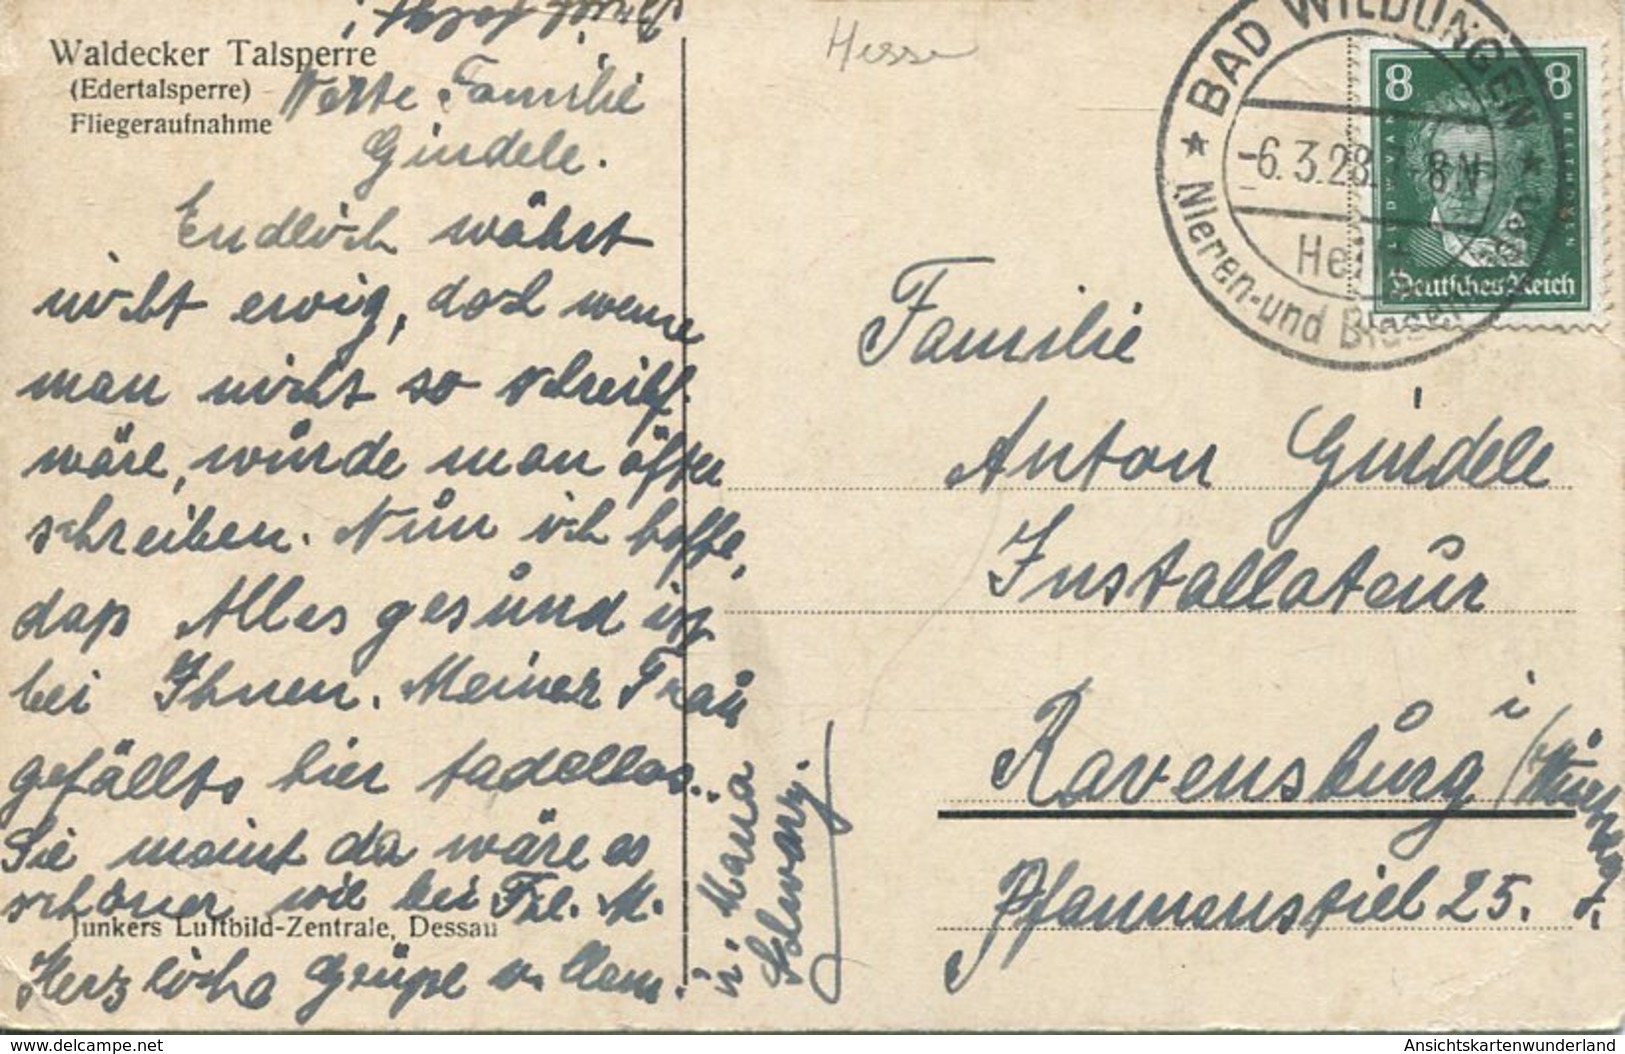 Brief folgt!
Waldecker Talsperre
(Edertalsperre)
Fliegeraufnahme
Werte Familie
Gindele.
Endlich währt
nicht ewig, doch wenn
man nicht so schreibf.
wäre, würde man öfter
schreiben. Nun ich hoffe,
daß Alles gesund ist
bei Ihnen. Meiner Frau
gefällts hier tadellos..
Sie meint da wäre es
schöner wie bei Frl. M.
Junkers Luftbild-Zentrale, Dessau
Herzliche Grüße v. Clem.
u.
Hesse
BAD WILDUNGEN
-6.3.28. 8-9N
Nieren- und Blasen
8 8
LUDWIG VAN BEETHOVEN
Deutsches Reich
Familie
Anton Gindele
Installateur
Ravensburg i
/Württbg.
Pfannenstiel 25.
delcampe.net
AnsichtskartenWunderland